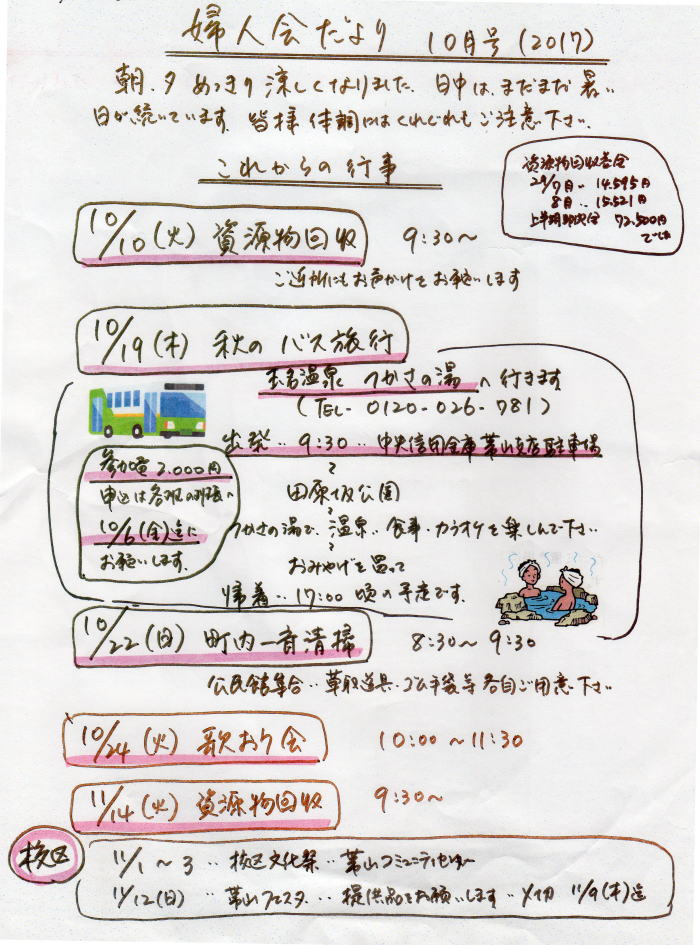 婦人会だより 10月号(2017)
朝、夕 めっきり 涼しくなりました。日中は、まだまだ 暑い
日が続いています。皆様 体調にはくれぐれもご注意下さい。
これからの行事
資源物回収
29/7月‥ 14,595円
8月‥ 15,521円
上半期助成金 72,500円
でした
10/10(火) 資源物回収 9:30~
ご近所にもお声かけをお願いします
10/19(木) 秋の バス旅行
玉名温泉 つかさの湯へ行きます
(TEL- 0120-026-781)
出発‥ 9:30‥ 中央信用金庫 帯山支店 駐車場
参加費 2,000円
申込は各班の班長へ
10/6(金)迄に
お願いします。
田原坂公園
つかさの湯で、温泉‥食事・カラオケを楽しんで下さい
おみやげを買って
帰着‥ 17:00 頃の予定です。
10/22(日) 町内一斉清掃 8:30~9:30
公民館集合‥草取道具・ゴム手袋等各自ご用意下さい
10/24(火) 歌おう会 10:00~11:30
11/14(火) 資源物回収 9:30~
校区
11/1~3‥校区文化祭‥帯山コミュニティセンター
11/12(日)‥帯山フェスタ‥提供品をお願いします‥〆切 11/9(木)迄